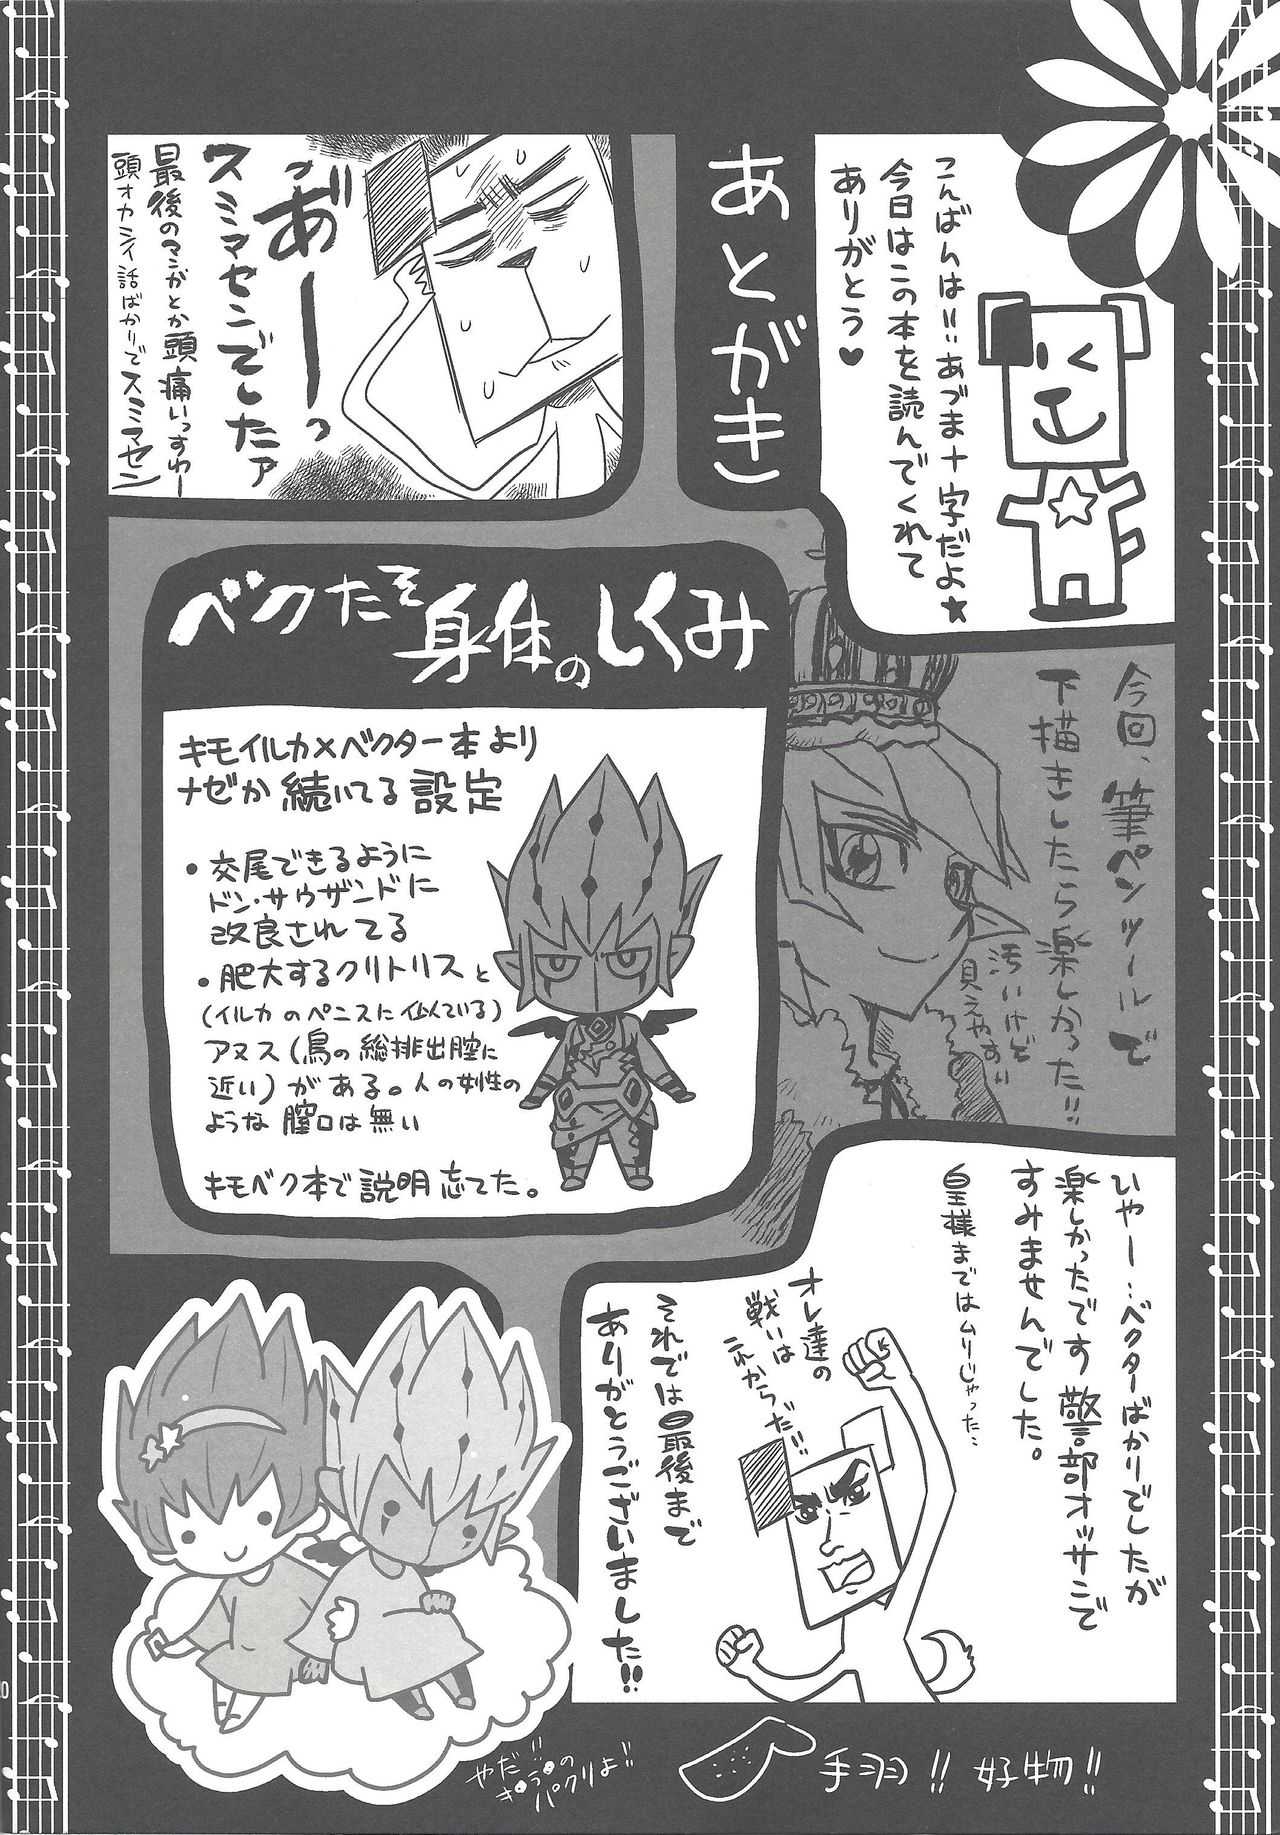 あとがき
こんばんは!!あづま十字だよ★
今日はこの本を読んでくれて
ありがとう♥
あ゛ーーっ
スミマセンでしたァ
最後のマンガとか頭痛いっすわー
頭オカシイ話ばかりでスミマセン
今回、筆ペンツールで
下描きしたら楽しかった!!
汚いけど
見えやすい
ベクたそ
身体のしくみ
キモイルカ×ベクター本より
ナゼか続いてる設定
•交尾できるように
ドン・サウザンドに
改良されてる
•肥大するクリトリスと
(イルカのペニスに似ている)
アヌス(鳥の総排出腔に
近い)がある。人の女性の
ような膣口は無い
キモベク本で説明忘れてた。
いやー…ベクターばかりでしたが
楽しかったです警部オッサンで
すみませんでした。
皇様まではムリじゃった…
オレ達の
戦いは
これからだ!!
それでは最後まで
ありがとうございました!!
やだ!!
パクリよ!!
手羽!! 好物!!